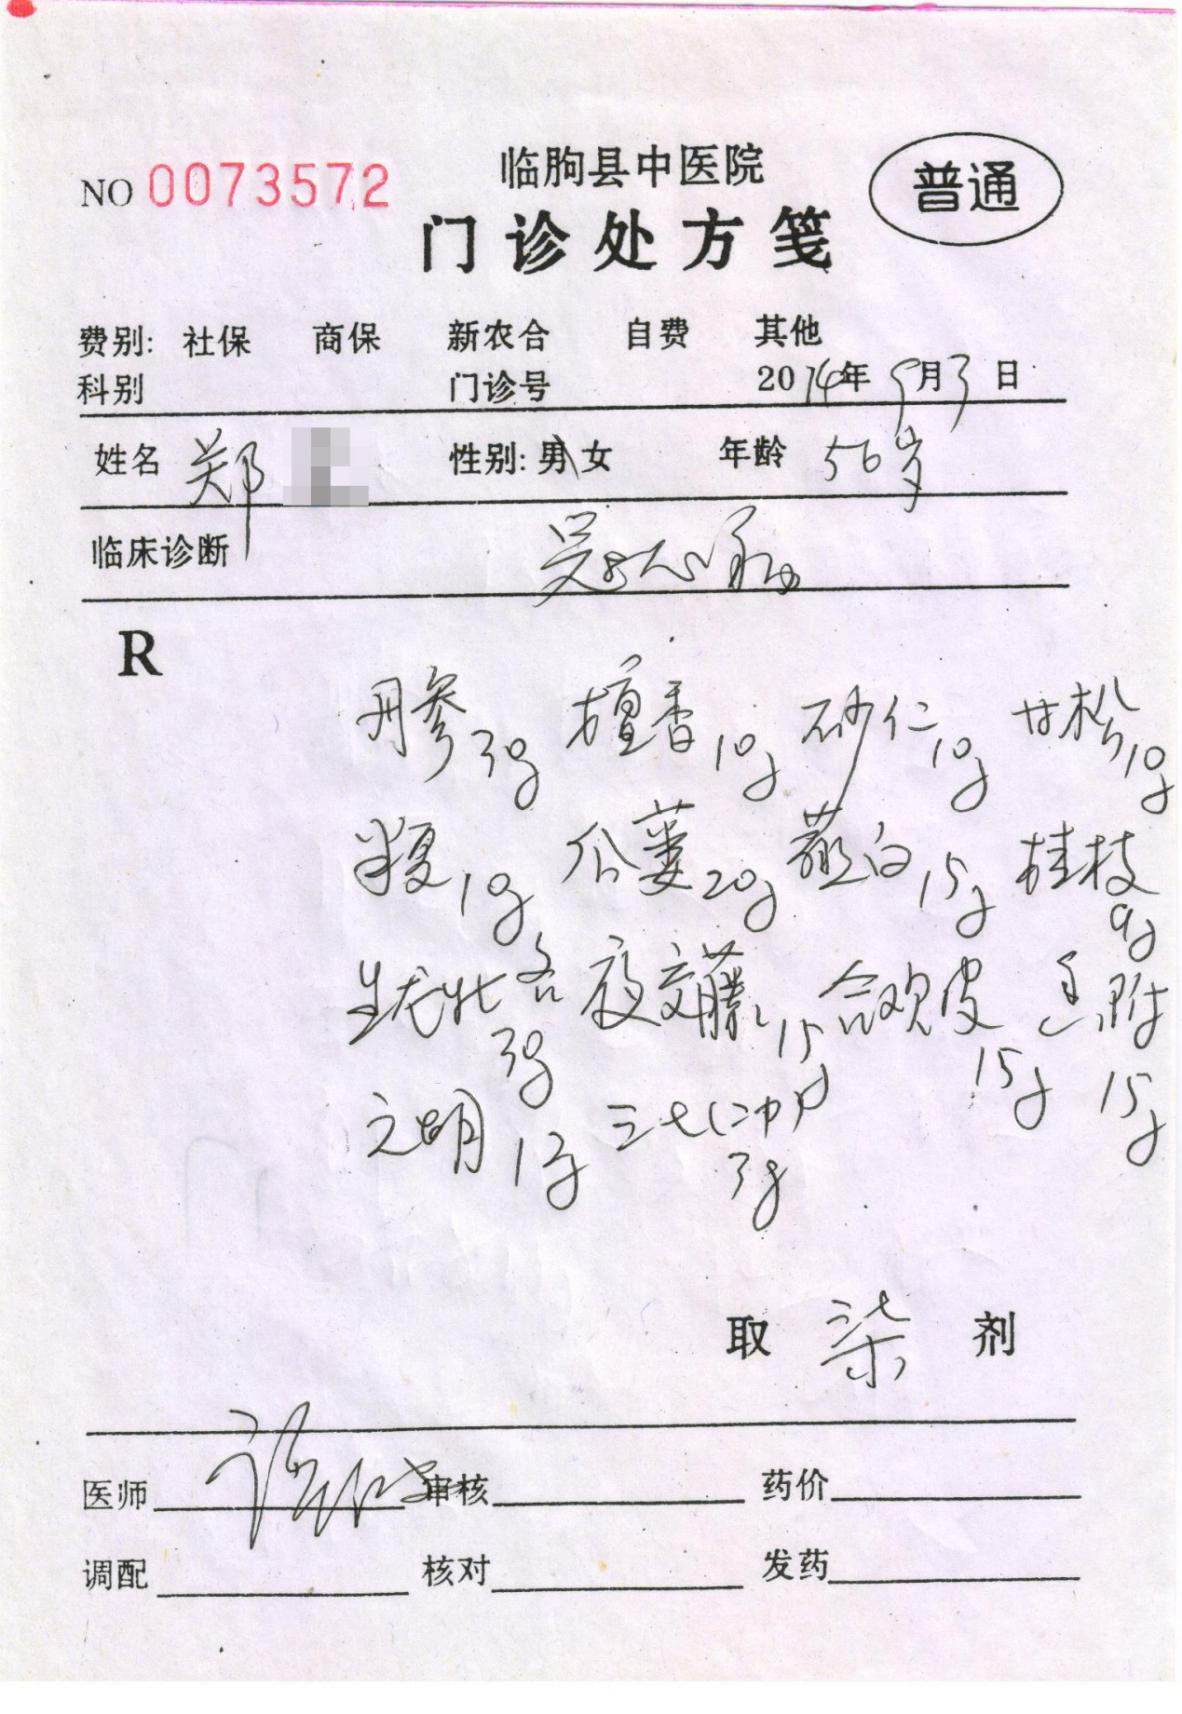 临朐县中医院
NO 0073572
普通
门诊处方笺
费别: 社保 商保 新农合 自费 其他
科别 门诊号 2014年9月3日
姓名 郑 性别: 男 女 年龄 56岁
临床诊断
R
丹参30g 檀香10g 砂仁10g 甘松10g
半夏10g 瓜蒌20g 薤白15g 桂枝9g
生龙牡各30g 夜交藤15g 合欢皮15g 香附15g
元胡12g 三七(冲)3g
取 柒 剂
医师 审核 药价
调配 核对 发药